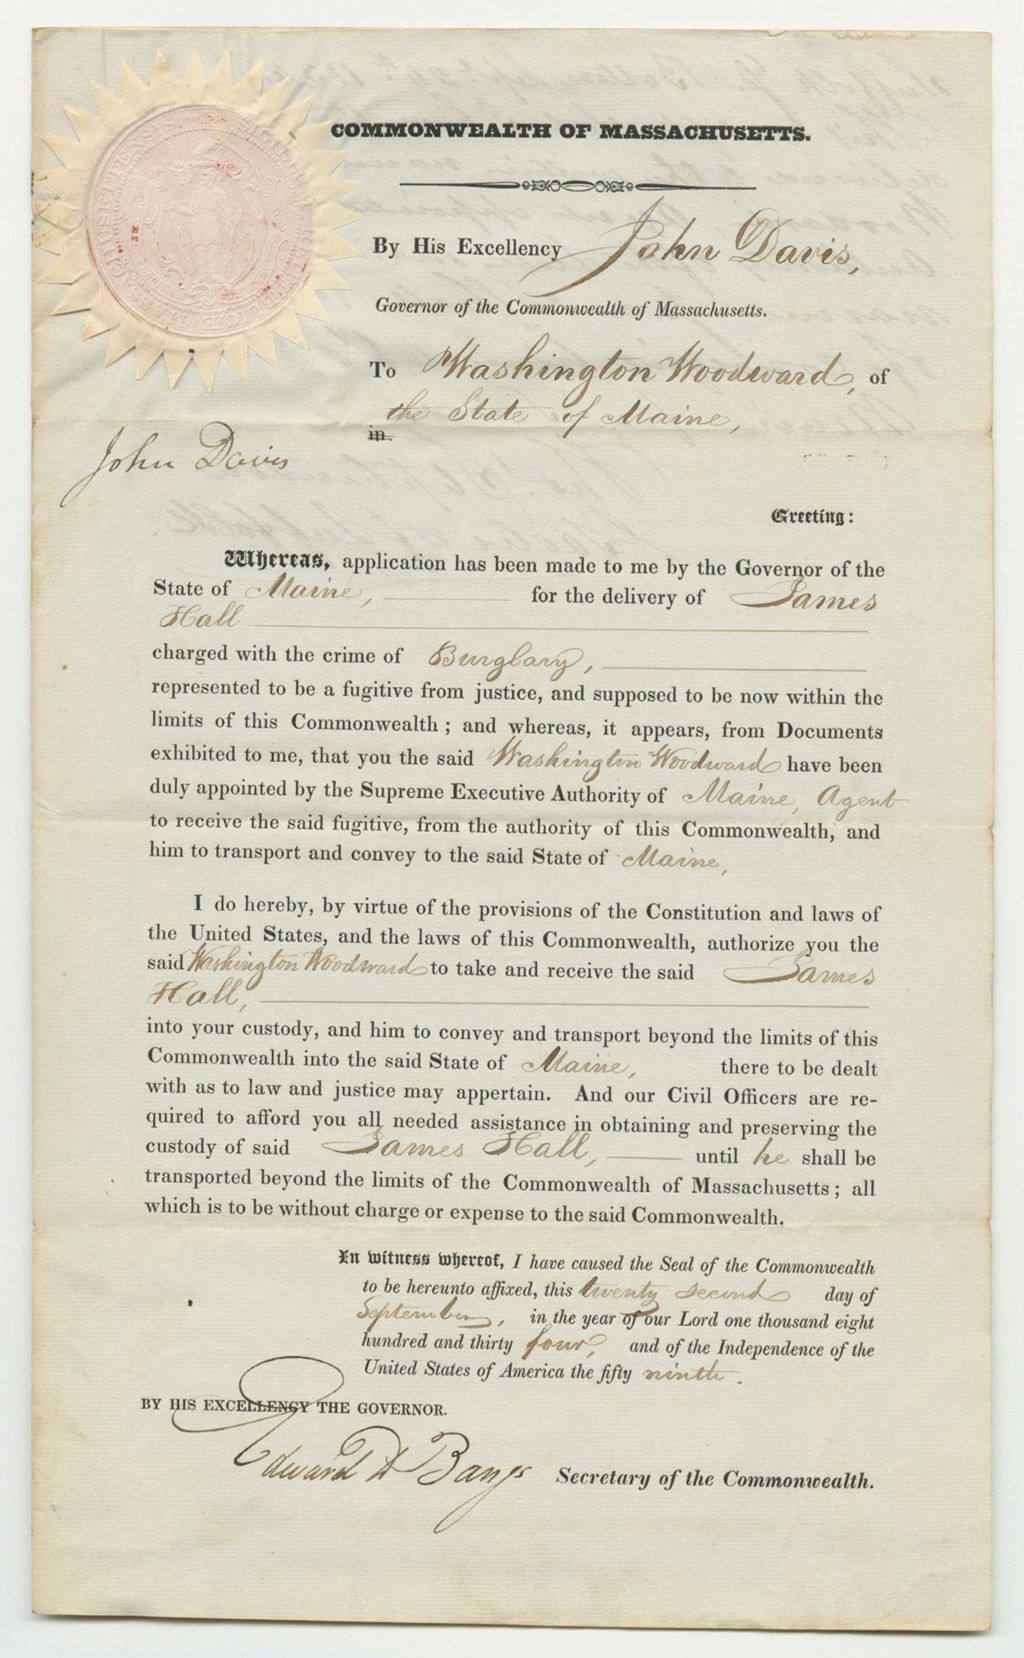 COMMONWEALTH OF MASSACHUSETTS.
By His Excellency John Davis,
Governor of the Commonwealth of Massachusetts.
To Washington Woodward, of
the State of Maine,
in
John Davis
Greeting:
Whereas, application has been made to me by the Governor of the
State of Maine, for the delivery of James
Hall
charged with the crime of Burglary,
represented to be a fugitive from justice, and supposed to be now within the
limits of this Commonwealth; and whereas, it appears, from Documents
exhibited to me, that you the said Washington Woodward have been
duly appointed by the Supreme Executive Authority of Maine, Agent
to receive the said fugitive, from the authority of this Commonwealth, and
him to transport and convey to the said State of Maine,
I do hereby, by virtue of the provisions of the Constitution and laws of
the United States, and the laws of this Commonwealth, authorize you the
said Washington Woodward to take and receive the said James
Hall,
into your custody, and him to convey and transport beyond the limits of this
Commonwealth into the said State of Maine, there to be dealt
with as to law and justice may appertain. And our Civil Officers are re-
quired to afford you all needed assistance in obtaining and preserving the
custody of said James Hall, until he shall be
transported beyond the limits of the Commonwealth of Massachusetts; all
which is to be without charge or expense to the said Commonwealth.
In witness whereof, I have caused the Seal of the Commonwealth
to be hereunto affixed, this twenty second day of
September, in the year of our Lord one thousand eight
hundred and thirty four, and of the Independence of the
United States of America the fifty ninth.
BY HIS EXCELLENCY THE GOVERNOR.
Edward D Bangs Secretary of the Commonwealth.